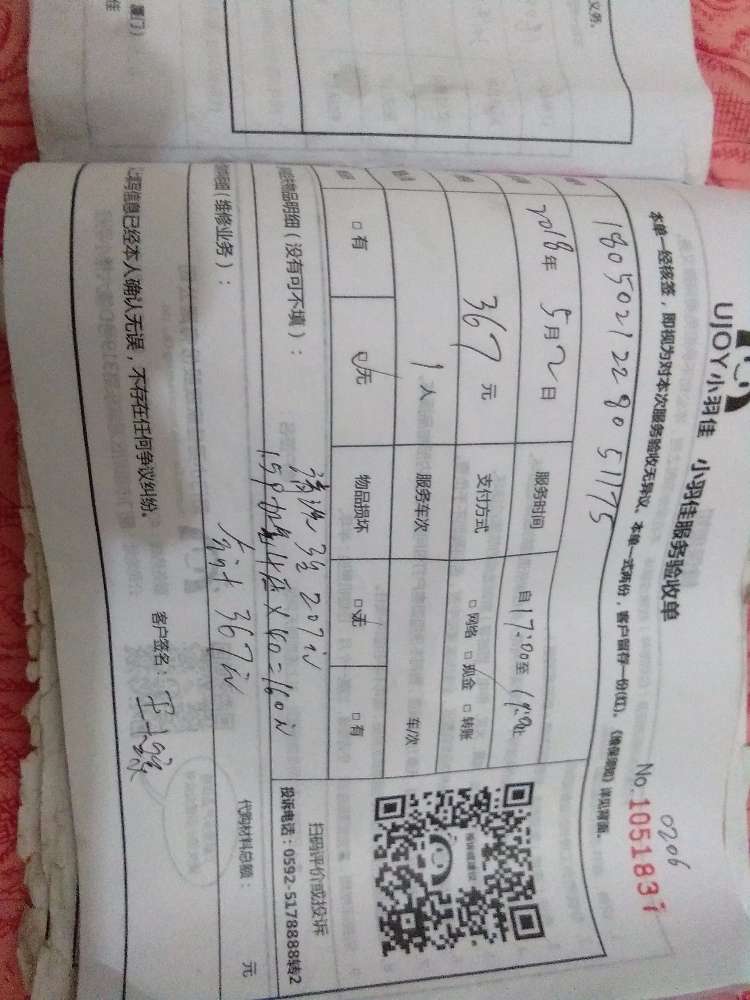 UJOY小羽佳 小羽佳服务验收单
0206
No.1051837
本单一经核签，即视为对本次服务验收无异议。本单一式两份，客户留存一份(红)。《维保须知》详见背面。
1805021228051175
2018年 5月2日 服务时间 自17:00至
367元 支付方式 □网络 □现金 □转账
1人 服务车次 车/次
□有 □无 物品损坏 □无 □有
扫码评价或投诉
投诉电话：0592-5178888转2
物品明细（没有可不填）：
清洗 207元
×40=160元
（维修业务）：
合计 367元
代购材料总额： 元
写信息已经本人确认无误，不存在任何争议纠纷。
客户签名：
厦门）
佳
义务。